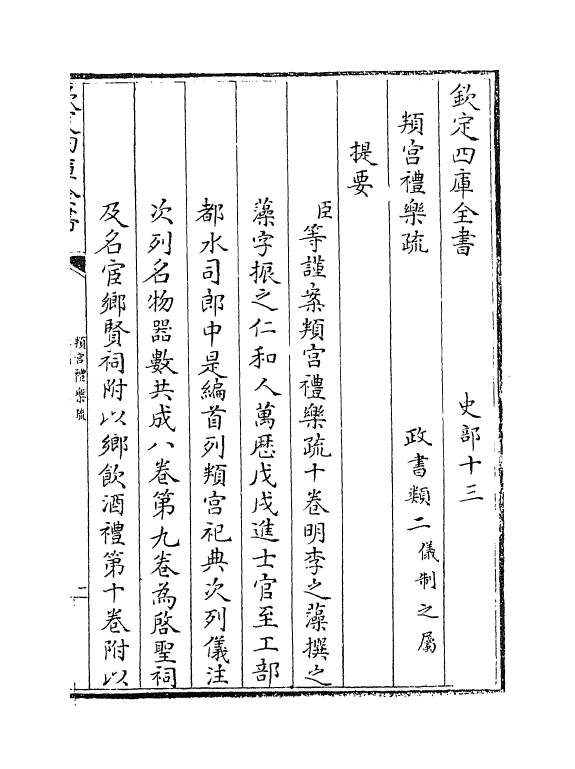 欽定四庫全書　史部十三
頖宫禮樂疏　政書類二儀制之屬
提要
臣等謹案頖宫禮樂疏十卷明李之藻撰之
藻字振之仁和人萬歴戊戌進士官至工部
都水司郎中是編首列頖宫祀典次列儀注
次列名物器數共成八卷第九卷為啓聖祠
及名宦鄉賢祠附以鄉飲酒禮第十卷附以
頖宫禮樂疏